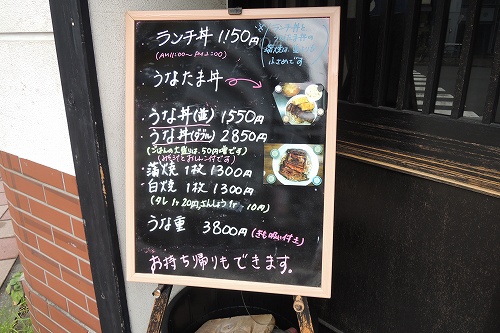 ランチ丼 1150円
(AM11:00〜PM2:00)
※ランチ丼と
うなたま丼の
蒲焼は
ふさめです
うなたま丼
うな丼(並) 1550円
うな丼(ダブル) 2850円
(ごはんの大盛りは50円増です)
(みそ汁とおしんこ付です)
蒲焼 1枚 1300円
白焼 1枚 1300円
(タレ 1ヶ 20円 さんしょう 1ヶ 10円)
うな重 3800円 (きも吸い付き)
お持ち帰りもできます。